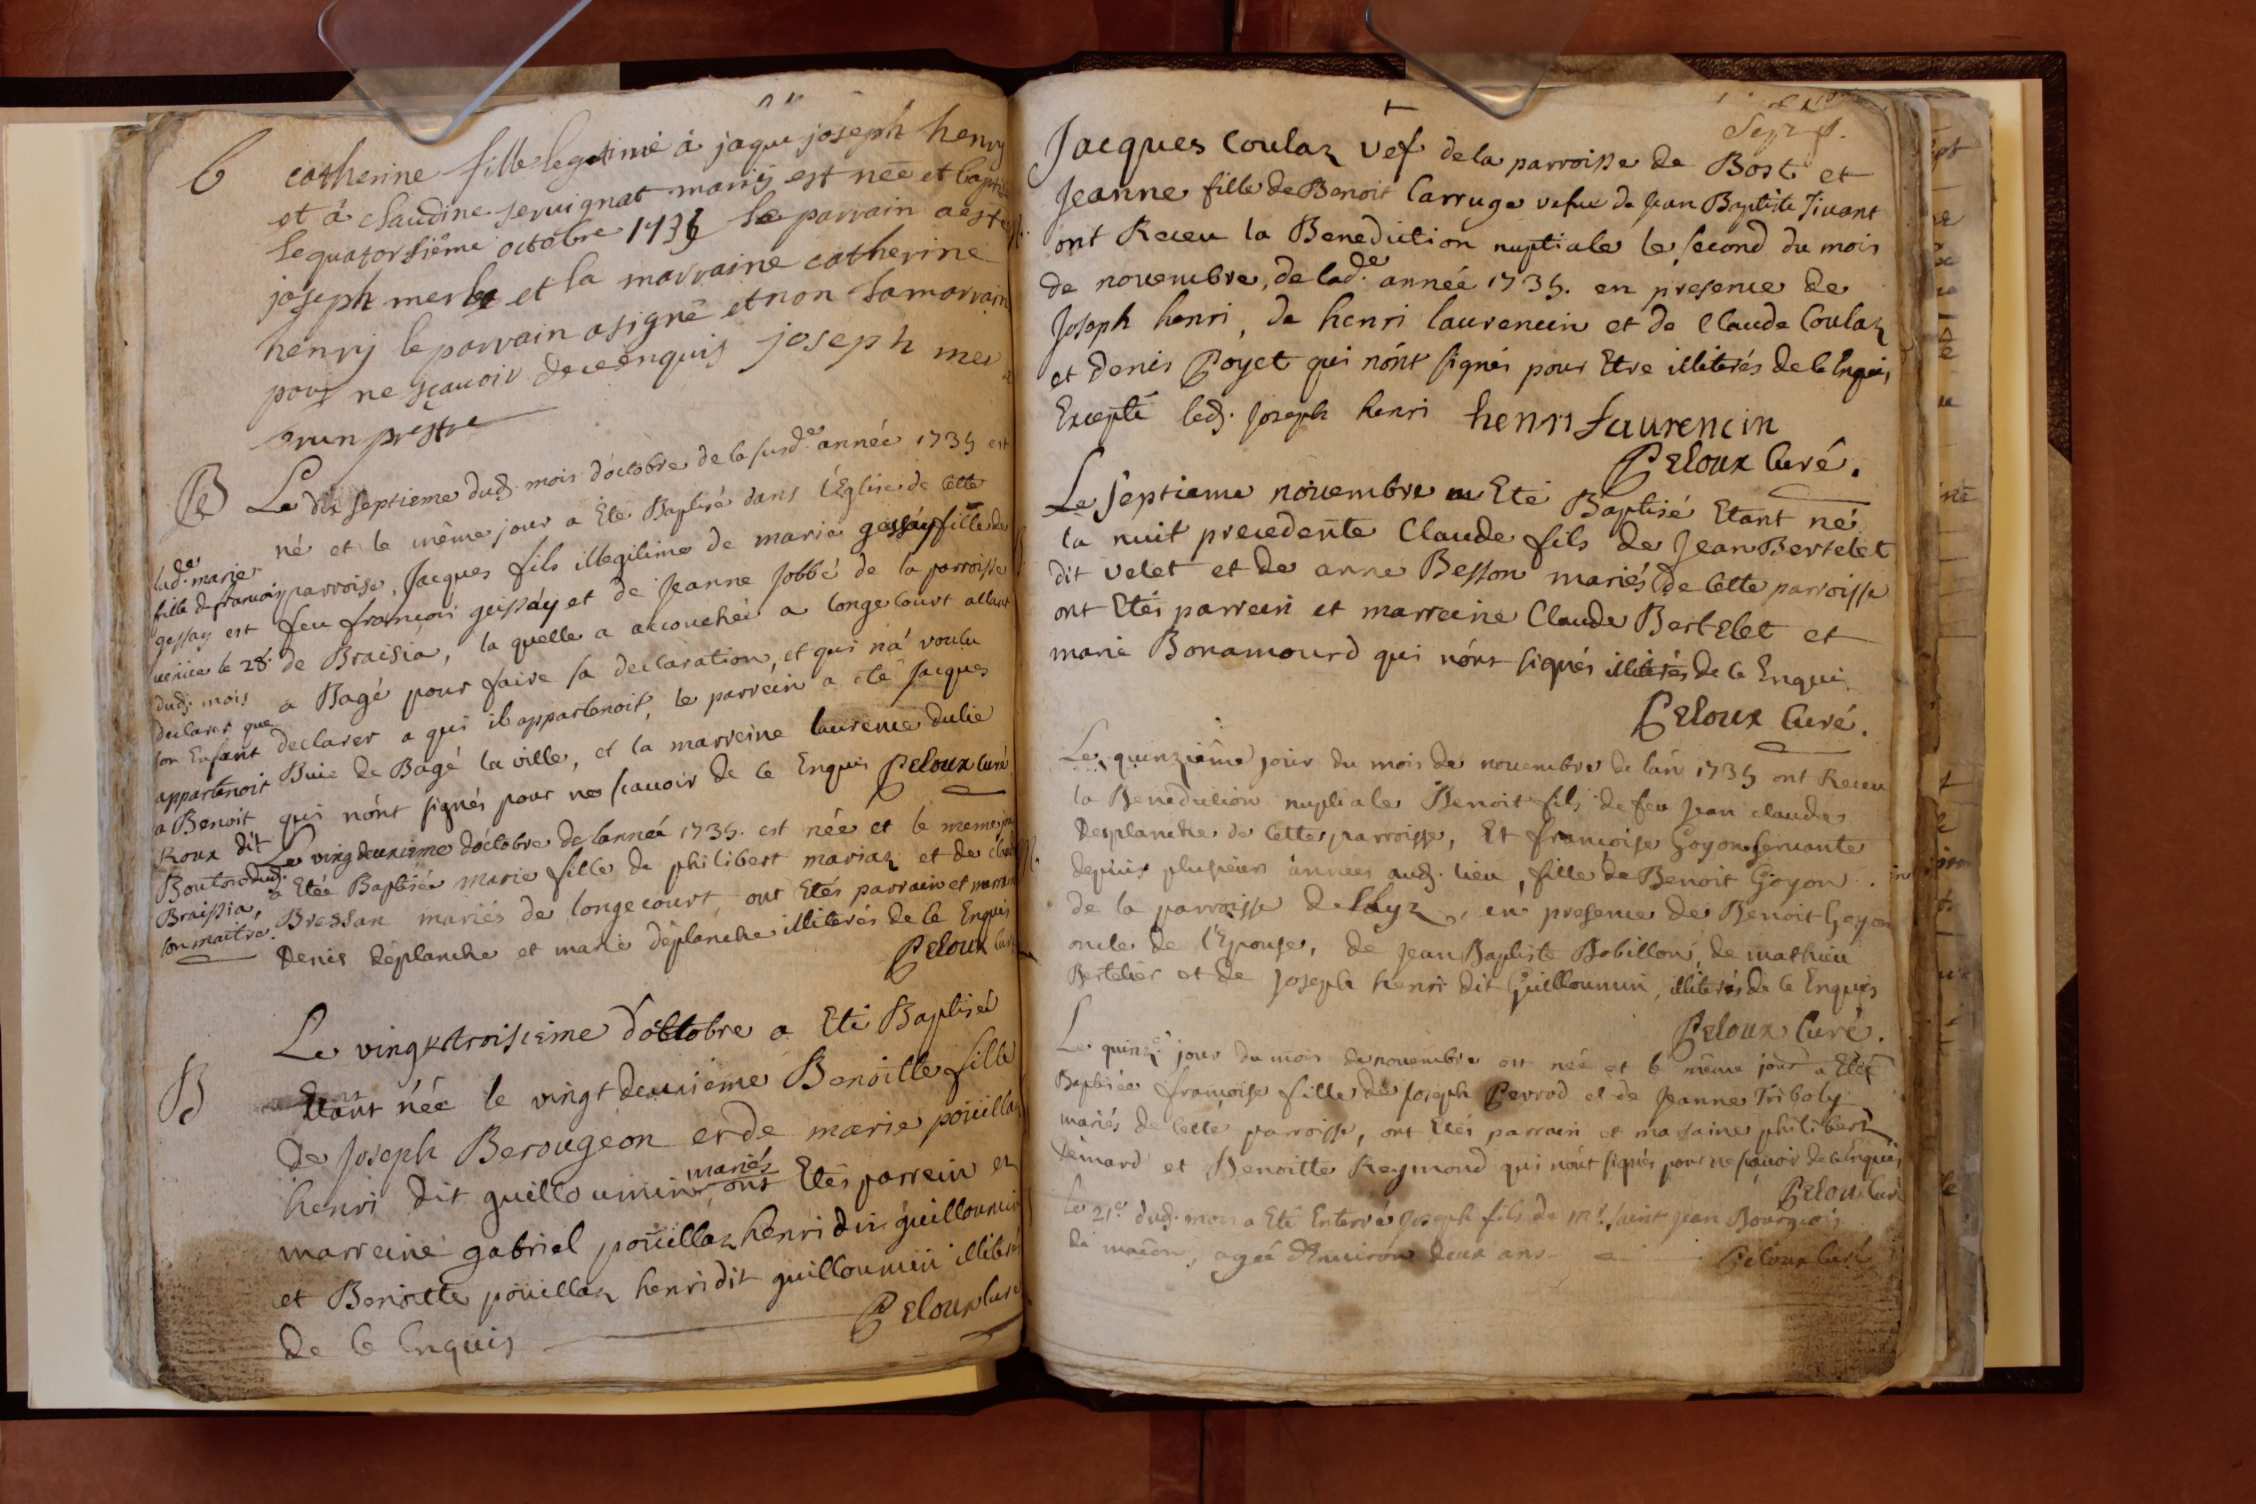 6 catherine fille legetime à jaque joseph henry
et á claudine seruignat mariỹ est neē et baptis
le quatorsiême octobre 1735 le parrain a este
joseph merle et la marraine catherine
henry le parrain a signé et non la marrain
pour ne sçauoir de ce enquis joseph mer
brun prestre
B Le dix septieme dud. mois d'octobre de la susd.e année 1735 est
né et le même jour a été Baptisé dans l'Eglise de cette
parroise, Jacques fils illegitime de marie gessay fille de
feu françois geissay et de Jeanne Jobbé de la parroisse
de Braisia, la quelle a accouchée a longecourt allant
a Bagé pour faire sa declaration, et qui n'a voulu
declarer a qui il appartenoit, le parrein a eté Jacques
Buie de Bagé la ville, et la marreine laurence dulie
qui n'ont signés pour ne scauoir de ce Enquis Peloux curé
lad.e marie
fille de françois
gessay est
venüe le 28.
dud. mois
declarer que
son Enfant
appartenoit
a Benoit
Roux dit
Bouton dud.
Braissia,
son maitre.
Le vingdeuxieme d'octobre de l'anneé 1735. est née et le meme jou
a Etée Baptisée marie fille de philibert mariaz et de
Bressan mariés de longecourt, ont Etés parrain et marrain
Denis déplanche et marie déplanche illiterés de ce Enquis
Peloux cur
B Le vingt troisieme d'octobre a Eté Baptiseé
Etant neé le vingt deuxieme Benoitte fille
de Joseph Berougeon et de marie poüillaz
henri dit guilloumin mariés, ont Etés parrein et
marreine gabriel poüillaz henri dit guilloumin
et Benoitte poüillaz henri dit guilloumin illiteré
de ce Enquis Peloux curé
Jacques Coulaz vef de la parroisse de Bost et
Jeanne fille de Benoit Carruge vefue de Jean Baptiste Tiuant
ont Receu la Benediction nuptiale le second du mois
de nouembre, de lad.e anneé 1735. en presence de
Joseph henri, de henri laurencin et de Claude Coulaz
et Denis Poyet qui n'ont signés pour Etre illiterés de ce Enquis
Excepté led. Joseph henri henri laurencin
Peloux Curé.
Le septieme nouembre a Eté Baptisé Etant né
la nuit precedente Claude fils de Jean Bertelet
dit velet et de anne Besson mariés de cette parroisse
ont Etés parrein et marreine Claude Bertelet et
marie Bonamourd qui n'ont signés illiterés de ce Enqui
Peloux Curé.
Le quinziême jour du mois de nouembre de l'an 1735 ont Receu
la Benediction nuptiale Benoit fils de feu Jean claude
Desplanche de cette parroisse, Et françoise Goyon seruante
depuis plusieurs années aud. lieu, fille de Benoit Goyon
de la parroisse de Layz, en presence de Benoit Goyon
oncle de l'Epouse, de Jean Baptiste Bobillon, de mathieu
Bertelier et de Joseph henri dit Guilloumin, illiterés de ce Enquis
Peloux Curé.
Le quinz.e jour du mois de nouembre est née et le même jour a Eteé
Baptisée françoise fille de Joseph Perrod et de Jeanne Triboly
mariés de cette parroisse, ont Etés parrain et maraine philibert
Demard et Benoitte Reymond qui n'ont signés pour ne sçauoir de ce Enquis
Peloux Curé
Le 21.e dud. mois a Eté Enterré Joseph fils de Mr. Saint Jean Bourgeois
de macon, ageé d'Enuiron deux ans Peloux Curé